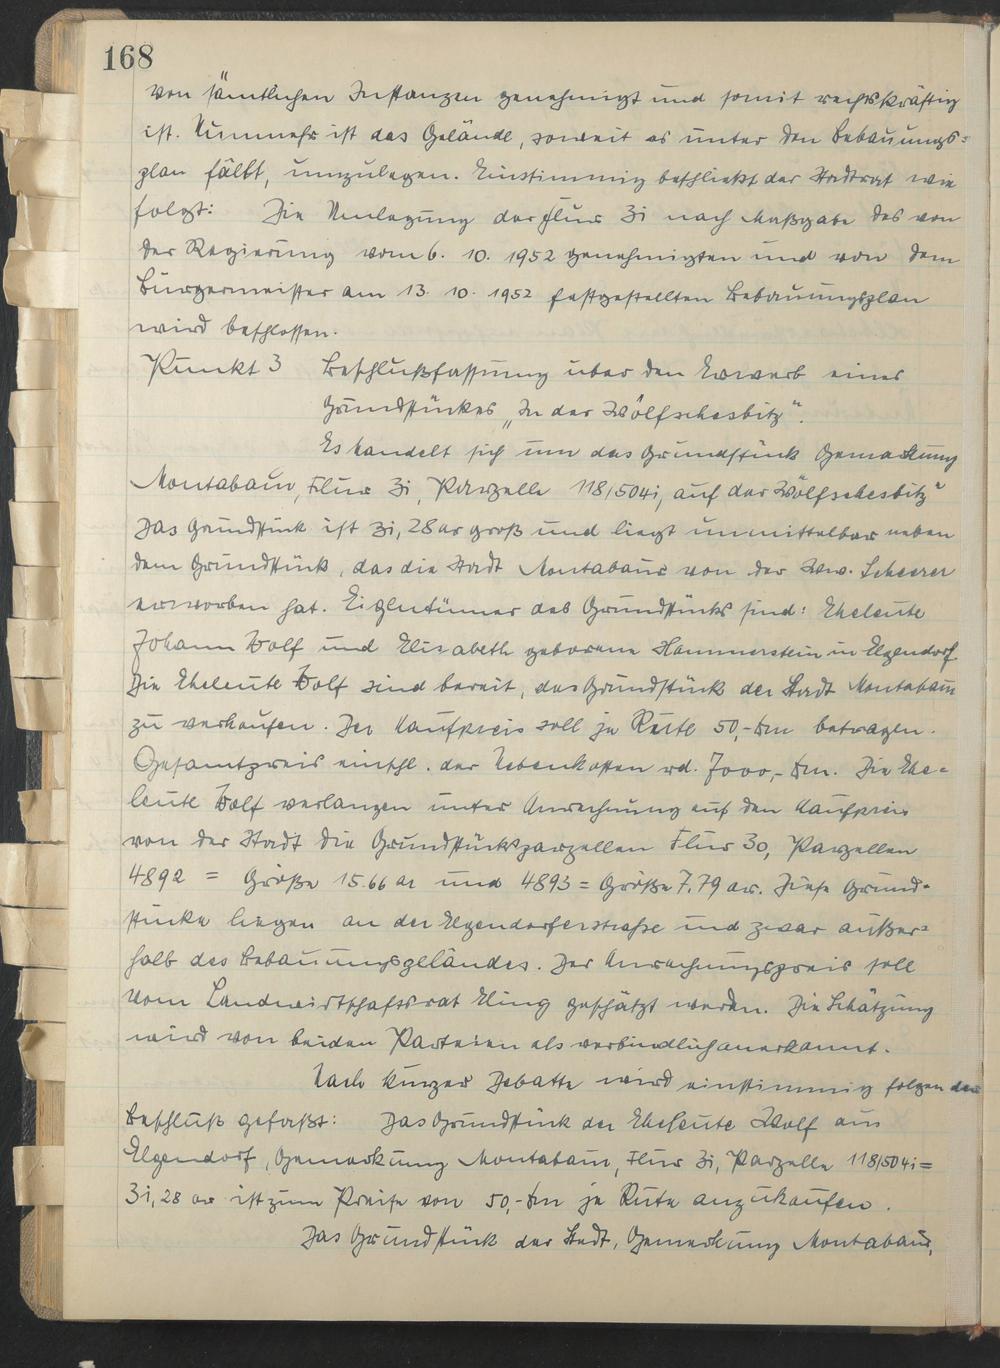 168
von sämtlichen Instanzen genehmigt und somit rechtskräftig
ist. Nunmehr ist das Gelände, soweit es unter den Bebauungs=
plan fällt, umzulegen. Einstimmig beschließt der Stadtrat wie
folgt: Die Umlegung der Flur 31 nach Maßgabe des von
der Regierung vom 6. 10. 1952 genehmigten und von dem
Bürgermeister am 13. 10. 1952 festgestellten Bebauungsplan
wird beschlossen.
Punkt 3 Beschlußfassung über den Erwerb eines
Grundstückes „In der Wölfschesbitz".
Es handelt sich um das Grundstück Gemarkung
Montabaur, Flur 31, Parzelle 118/5041, auf der Wölfschesbitz"
Das Grundstück ist 31,28 ar groß und liegt unmittelbar neben
dem Grundstück, das die Stadt Montabaur von der Ww. Scheerer
erworben hat. Eigentümer des Grundstücks sind: Eheleute
Johann Wolf und Elisabeth geborene Hammerstein in Elgendorf
Die Eheleute Wolf sind bereit, das Grundstück der Stadt Montabaur
zu verkaufen. Der Kaufpreis soll je Rute 50,- Dm betragen.
Gesamtpreis einschl. der Nebenkosten rd. 7000,- Dm. Die Ehe=
leute Wolf verlangen unter Anrechnung auf den Kaufpreis
von der Stadt die Grundstücksparzellen Flur 30, Parzellen
4892 = Größe 15.66 ar und 4893 = Größe 7.79 ar. Diese Grund=
stücke liegen an der Elgendorferstraße und zwar außer=
halb des Bebauungsgeländes. Der Anrechnungspreis soll
vom Landwirtschaftsrat Eling geschätzt werden. Die Schätzung
wird von beiden Parteien als verbindlich anerkannt.
Nach kurzer Debatte wird einstimmig folgender
Beschluß gefaßt: Das Grundstück der Eheleute Wolf aus
Elgendorf, Gemarkung Montabaur, Flur 31, Parzelle 118/5041=
31,28 ar ist zum Preise von 50,- Dm je Rute anzukaufen.
Das Grundstück der Stadt, Gemarkung Montabaur,